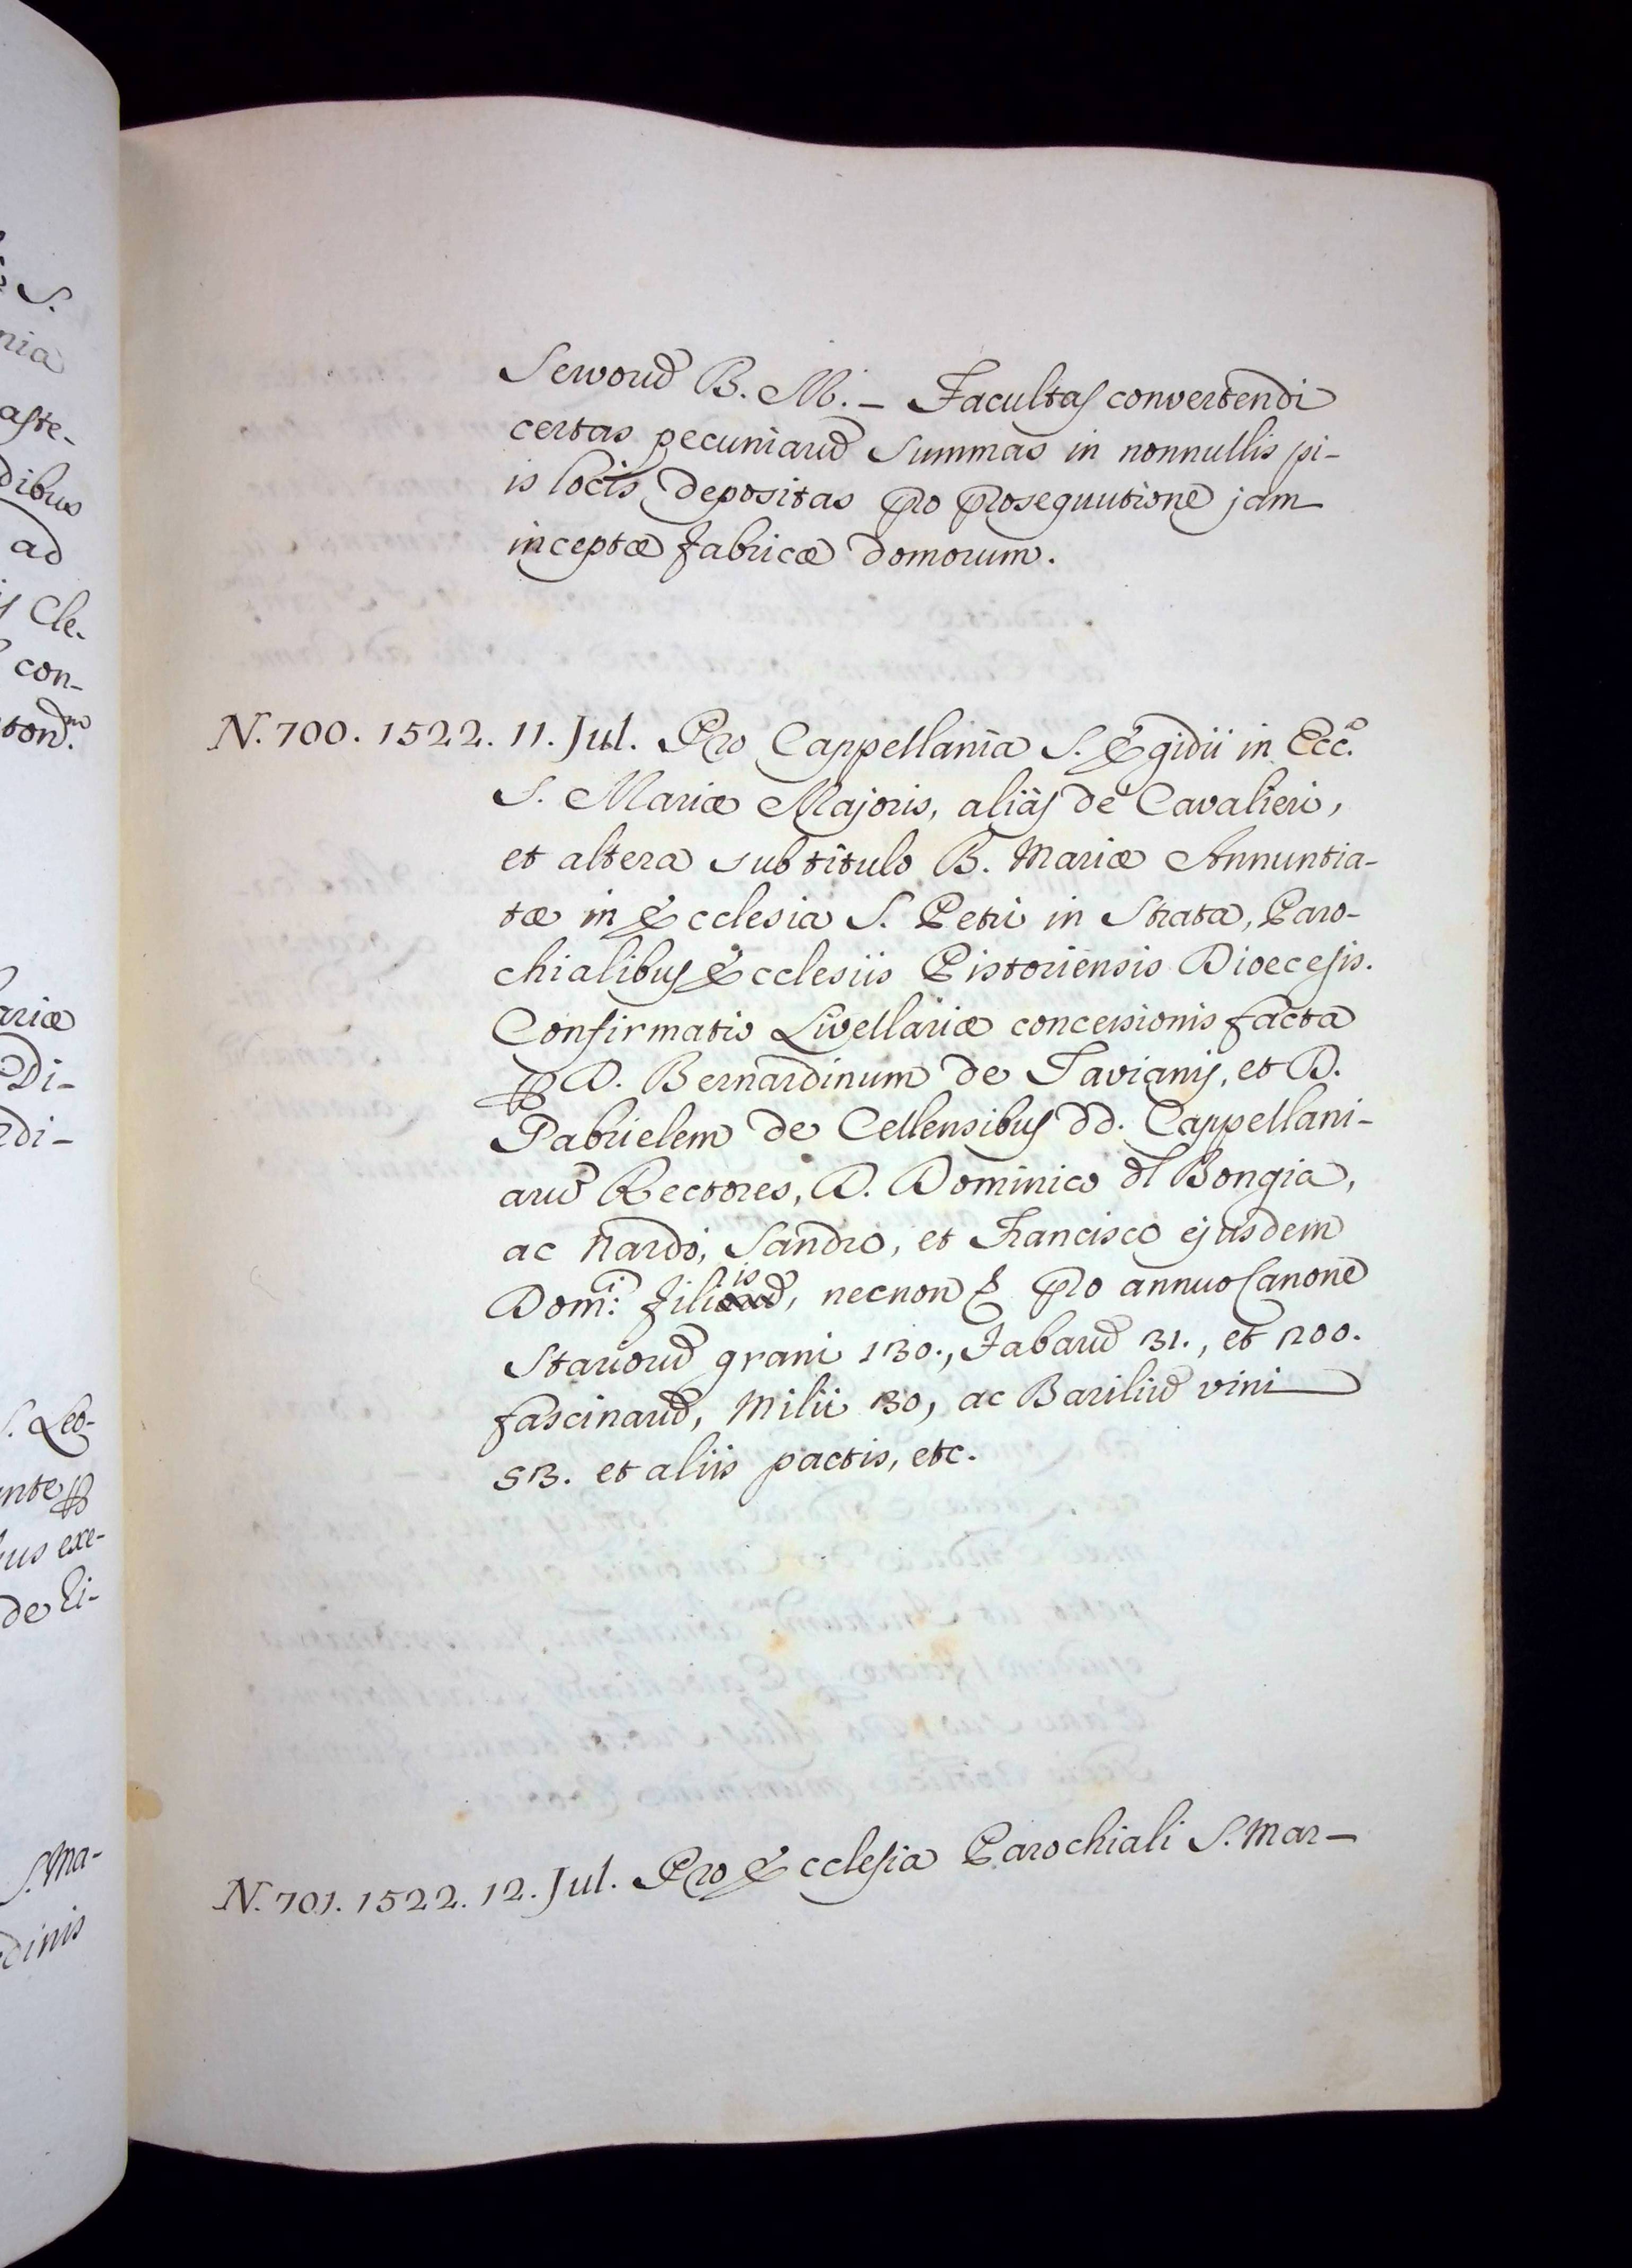 S.
nia
aste-
dibus
ad
Cle-
con-
ariæ
Di-
di-
S. Leo-
ante
us exe-
de Li-
S. Ma-
dinis
Servorũ B. M. – Facultas convertendi
certas pecuniarũ summas in nonnullis pi-
is locis depositas pro prosequutione jam
inceptæ fabricæ domorum.
N. 700. 1522. 11. Jul. Pro Cappellania S. Egidii in Ecc.ª
S. Mariæ Majoris, aliàs de Cavalieri,
et altera sub titulo B. Mariæ Annuntia-
tæ in Ecclesia S. Petri in Strata, Paro-
chialibus Ecclesiis Pistoriensis Dioecesis.
Confirmatio Livellariæ concessionis facta
ꝑ D. Bernardinum de Tavianis, et D.
Gabrielem de Cellensibus dd. Cappellani-
arũ Rectores, D. Dominico dl Bongia,
ac Nardo, Sandro, et Francisco ejusdem
Dom.ⁱ filiis, necnon & pro annuo Canone
Stariorũ grani 130., Fabarũ 31., et 200.
fascinarũ, Milii 30, ac Bariliũ vini
53. et aliis pactis, etc.
N. 701. 1522. 12. Jul. Pro Ecclesia Parochiali S. Mar-